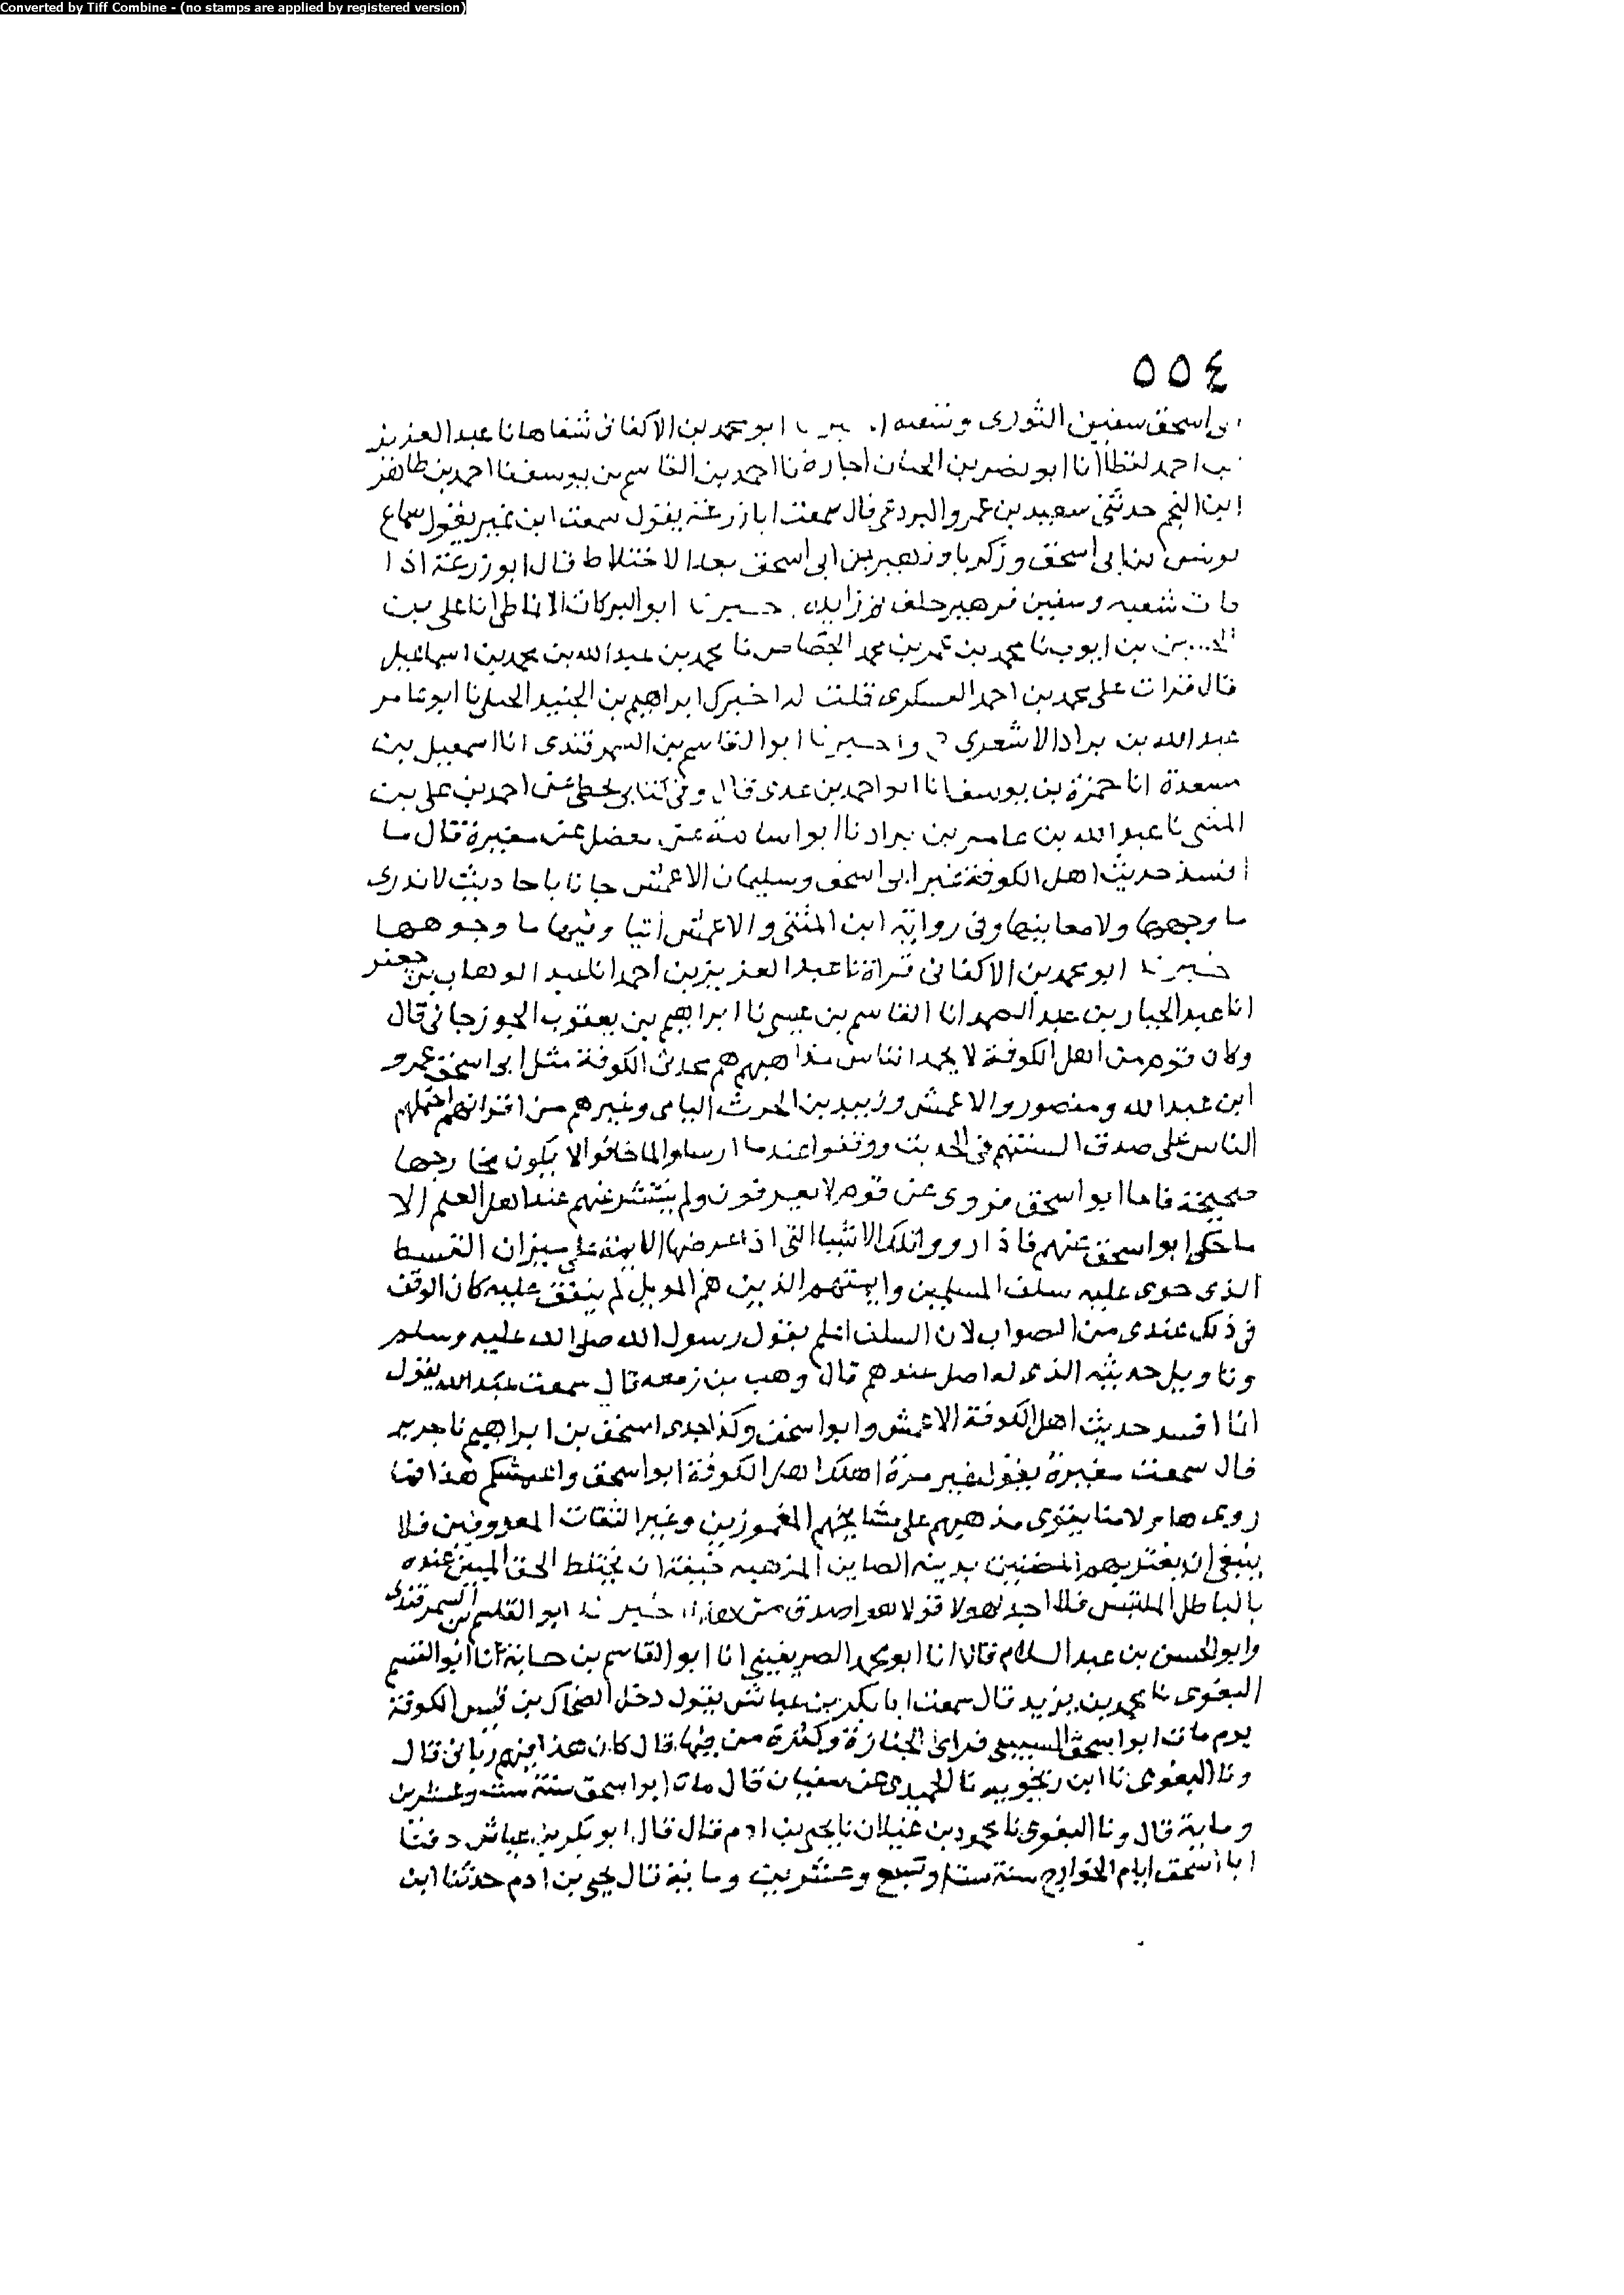 Converted by Tiff Combine - (no stamps are applied by registered version)
٥٥٤
ابى اسحق سفين الثورى وشعبه ابو محمد بن الاكفانى شفاها نا عبد العزيز
بن احمد لفظا انا ابو نصر بن الجبان اجازة نا احمد بن القاسم بن يوسف نا احمد بن طاهر
ابن النجم حدثنى سعيد بن عمرو البردعى قال سمعت ابا زرعة يقول سمعت ابن نمير يقول سماع
يونس بن ابى اسحق وزكريا وزهير من ابى اسحق بعد الاختلاط قال ابو زرعة اذا
مات شعبه وسفين فزهير خلف ثم زايده. خبرنا ابو البركات الانماطى انا على بن
الحسين بن ايوب نا محمد بن عمر بن محمد الجصاص نا محمد بن عبد الله بن محمد بن اسماعيل
قال قرات على محمد بن احمد العسكرى قلت له اخبرك ابراهيم بن الجنيد الختلى نا ابو عامر
عبد الله بن براد الاشعرى ح واخبرنا ابو القاسم بن السمرقندى انا اسمعيل بن
مسعدة انا حمزة بن يوسف انا ابو احمد بن عدى قال وفى كتابى بخطى عن احمد بن على بن
المثنى نا عبد الله بن عامر بن براد نا ابو اسامة عن مفضل عن مغيرة قال ما
افسد حديث اهل الكوفة غير ابى اسحق وسليمان الاعمش جانا باحاديث لا ندرى
ما وجهها ولا معانيها وفى رواية ابن المثنى والاعمش اتيا وفيها ما وجوهها
خبرنا ابو محمد بن الاكفانى قراة نا عبد العزيز بن احمد انا عبد الوهاب بن جعفر
انا عبد الجبار بن عبد الصمد انا القاسم بن عيسى نا ابراهيم بن يعقوب الجوزجانى قال
وكان قوم من اهل الكوفة لا يحمد الناس مذاهبهم هم محدثى الكوفة مثل ابى اسحق عمرو
ابن عبد الله ومنصور والاعمش وزبيد بن الحرث اليامى وغيرهم من اقرانهم احتملهم
الناس على صدق السنتهم فى الحديث ووقفوا عندما ارسلوا لما خافوا الا يكون مخارجها
صحيحة فاما ابو اسحق فروى عن قوم لا يعرفون ولم ينتشر عنهم عند اهل العلم الا
ما حكى ابو اسحق عنهم فاذا روى تلك الاشيا التى اذا عرضها الايمة على ميزان القسط
الذى جرى عليه سلف المسلمين وايمتهم الذين هم الموبل لم ينفق عليه كان الوقف
فى ذلك عندى من الصواب لان السلف اعلم بقول رسول الله صلى الله عليه وسلم
وتاويل حديثه الذى له اصل عندهم قال وهب بن زمعه قال سمعت عبد الله يقول
انا افسد حديث اهل الكوفة الاعمش وابو اسحق وكذا حدثنى اسحق بن ابراهيم نا جرير
قال سمعت مغيرة يقول غير مرة اهلك اهل الكوفة ابو اسحق واعمشكم هذا
مذهبهم على مشايخهم المغموزين وغير الثقات المعروفين فلا
ينبغى ان يغتر بهم بدينه الصاين لمذهبه خيفة ان يختلط الحق المبين عنده
بالباطل الملتبس فلا اجد لهولا قولا هو اصدق من هذا خبرنا ابو القسم بن السمرقندى
وابو الحسن بن عبد السلام قالا انا ابو محمد الصريفينى انا ابو القاسم بن حبابة نا ابو القسم
البغوى نا محمد بن يزيد قال سمعت ابا بكر بن عياش يقول دخل الضحاك بن قيس الكوفة
يوم مات ابو اسحق السبيعى فراى الجنازة وكثرة من فيها قال كان هذا فيهم ربانى قال
ونا البغوى نا ابن زنجويه نا الحميدى عن سفيان قال مات ابو اسحق سنة ست وعشرين
وماية قال ونا البغوى نا محمود بن غيلان نا يحيى بن ادم قال قال ابو بكر بن عياش دفنا
ابا اسحق ايام الخوارج سنة ست او سبع وعشرين وماية قال يحيى بن ادم حدثنا ابن